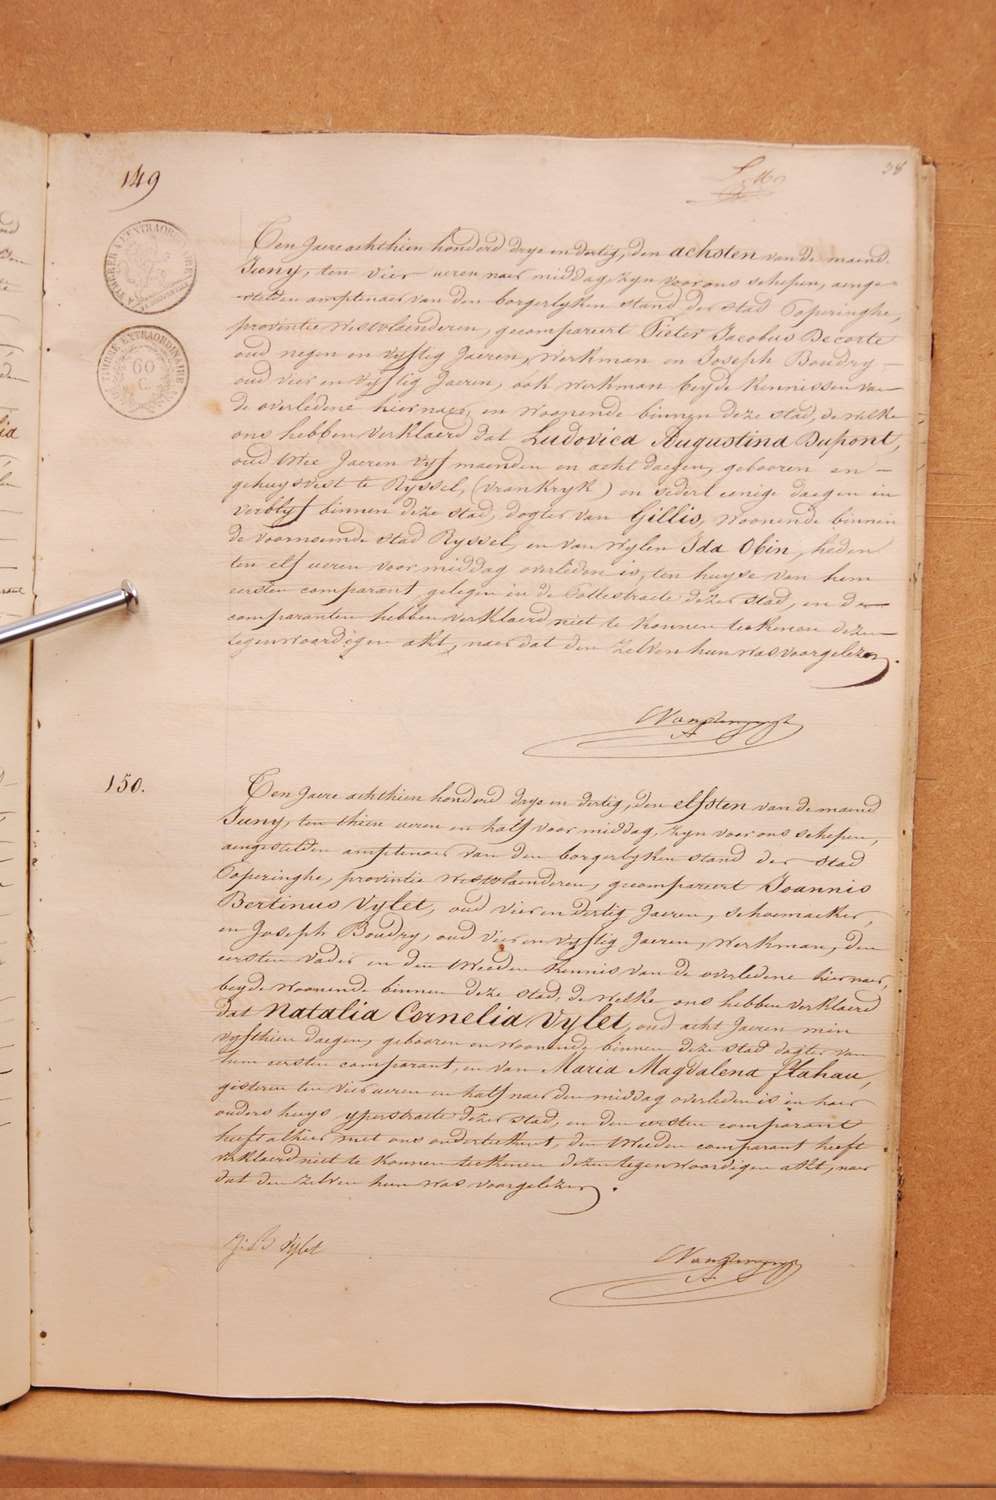 38
149
TIMBRE EXTRAORDINAIRE
60
C
Ten Jaere achthien honderd drye en dertig, den achsten van de maend
Juny, ten vier ueren naer middag, zyn voor ons schepen, aenge-
stelden amptenaer van den borgerlyken stand der stad Poperinghe,
provintie Westvlaenderen, gecompareert Pieter Jacobus Decorte
oud negen en vyftig Jaeren, Werkman en Joseph Boudry -
oud vier en vyftig Jaeren, ook werkman beyde kennissen van
de overledene hiernaer, en woonende binnen deze stad, de welke
ons hebben verklaerd dat Ludovica Augustina Dupont,
oud twee Jaeren vyf maenden en acht daegen, gebooren en -
gehuysvest te Ryssel, (vrankryk) en sedert eenige daegen in
verblyf binnen deze stad, dogter van Gillis, woonende binnen
de voornoemde stad Ryssel, en van wylen Ida Obin, heden
ten elf ueren voor middag overleden is, ten huyse van hem
eersten comparant, gelegen in de straete dezer stad, en de
comparanten hebben verklaerd niet te konnen teekenen dezen
tegenwoordigen akt, naer dat den zelven hun was voorgelezen.
150.
Ten Jaere achthien honderd drye en dertig, den elfsten van de maend
Juny, ten thien ueren en half voor middag, zyn voor ons schepen,
aengestelden amptenaer van den borgerlyken stand der stad
Poperinghe, provintie Westvlaenderen, gecompareert Joannis
Bertinus Vylet, oud vier en dertig Jaeren, schoemaeker,
en Joseph Boudry, oud vier en vyftig Jaeren, Werkman, den
eersten vader en den tweeden kennis van de overledene hiernaer,
beyde woonende binnen deze stad, de welke ons hebben verklaerd
dat Natalia Cornelia Vylet, oud acht Jaeren min
vyfthien daegen, gebooren en woonende binnen deze stad dogter van
hem eersten comparant, en van Maria Magdalena flahau,
gisteren ten vier ueren en half naer den middag overleden is in haer
ouders huys yperstraete dezer stad, en den eersten comparant
heeft alhier met ons onderteekent, den tweeden comparant heeft
verklaerd niet te konnen teekenen dezen tegenwoordigen akt, naer
dat den zelven hun was voorgelezen.
J:B Vylet